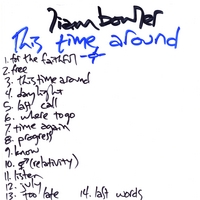 liam bowler
This time around
1. for the faithful
2. free
3. this time around
4. daylight
5. last call
6. where to go
7. time again
8. progress
9. know
10. (relativity)
11. listen
12. july
13. too late 14. last words